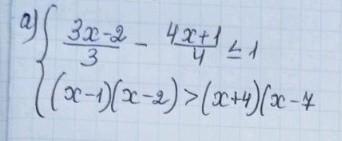 a) { (3x-2)/3 - (4x+1)/4 ≤ 1
(x-1)(x-2)>(x+4)(x-7